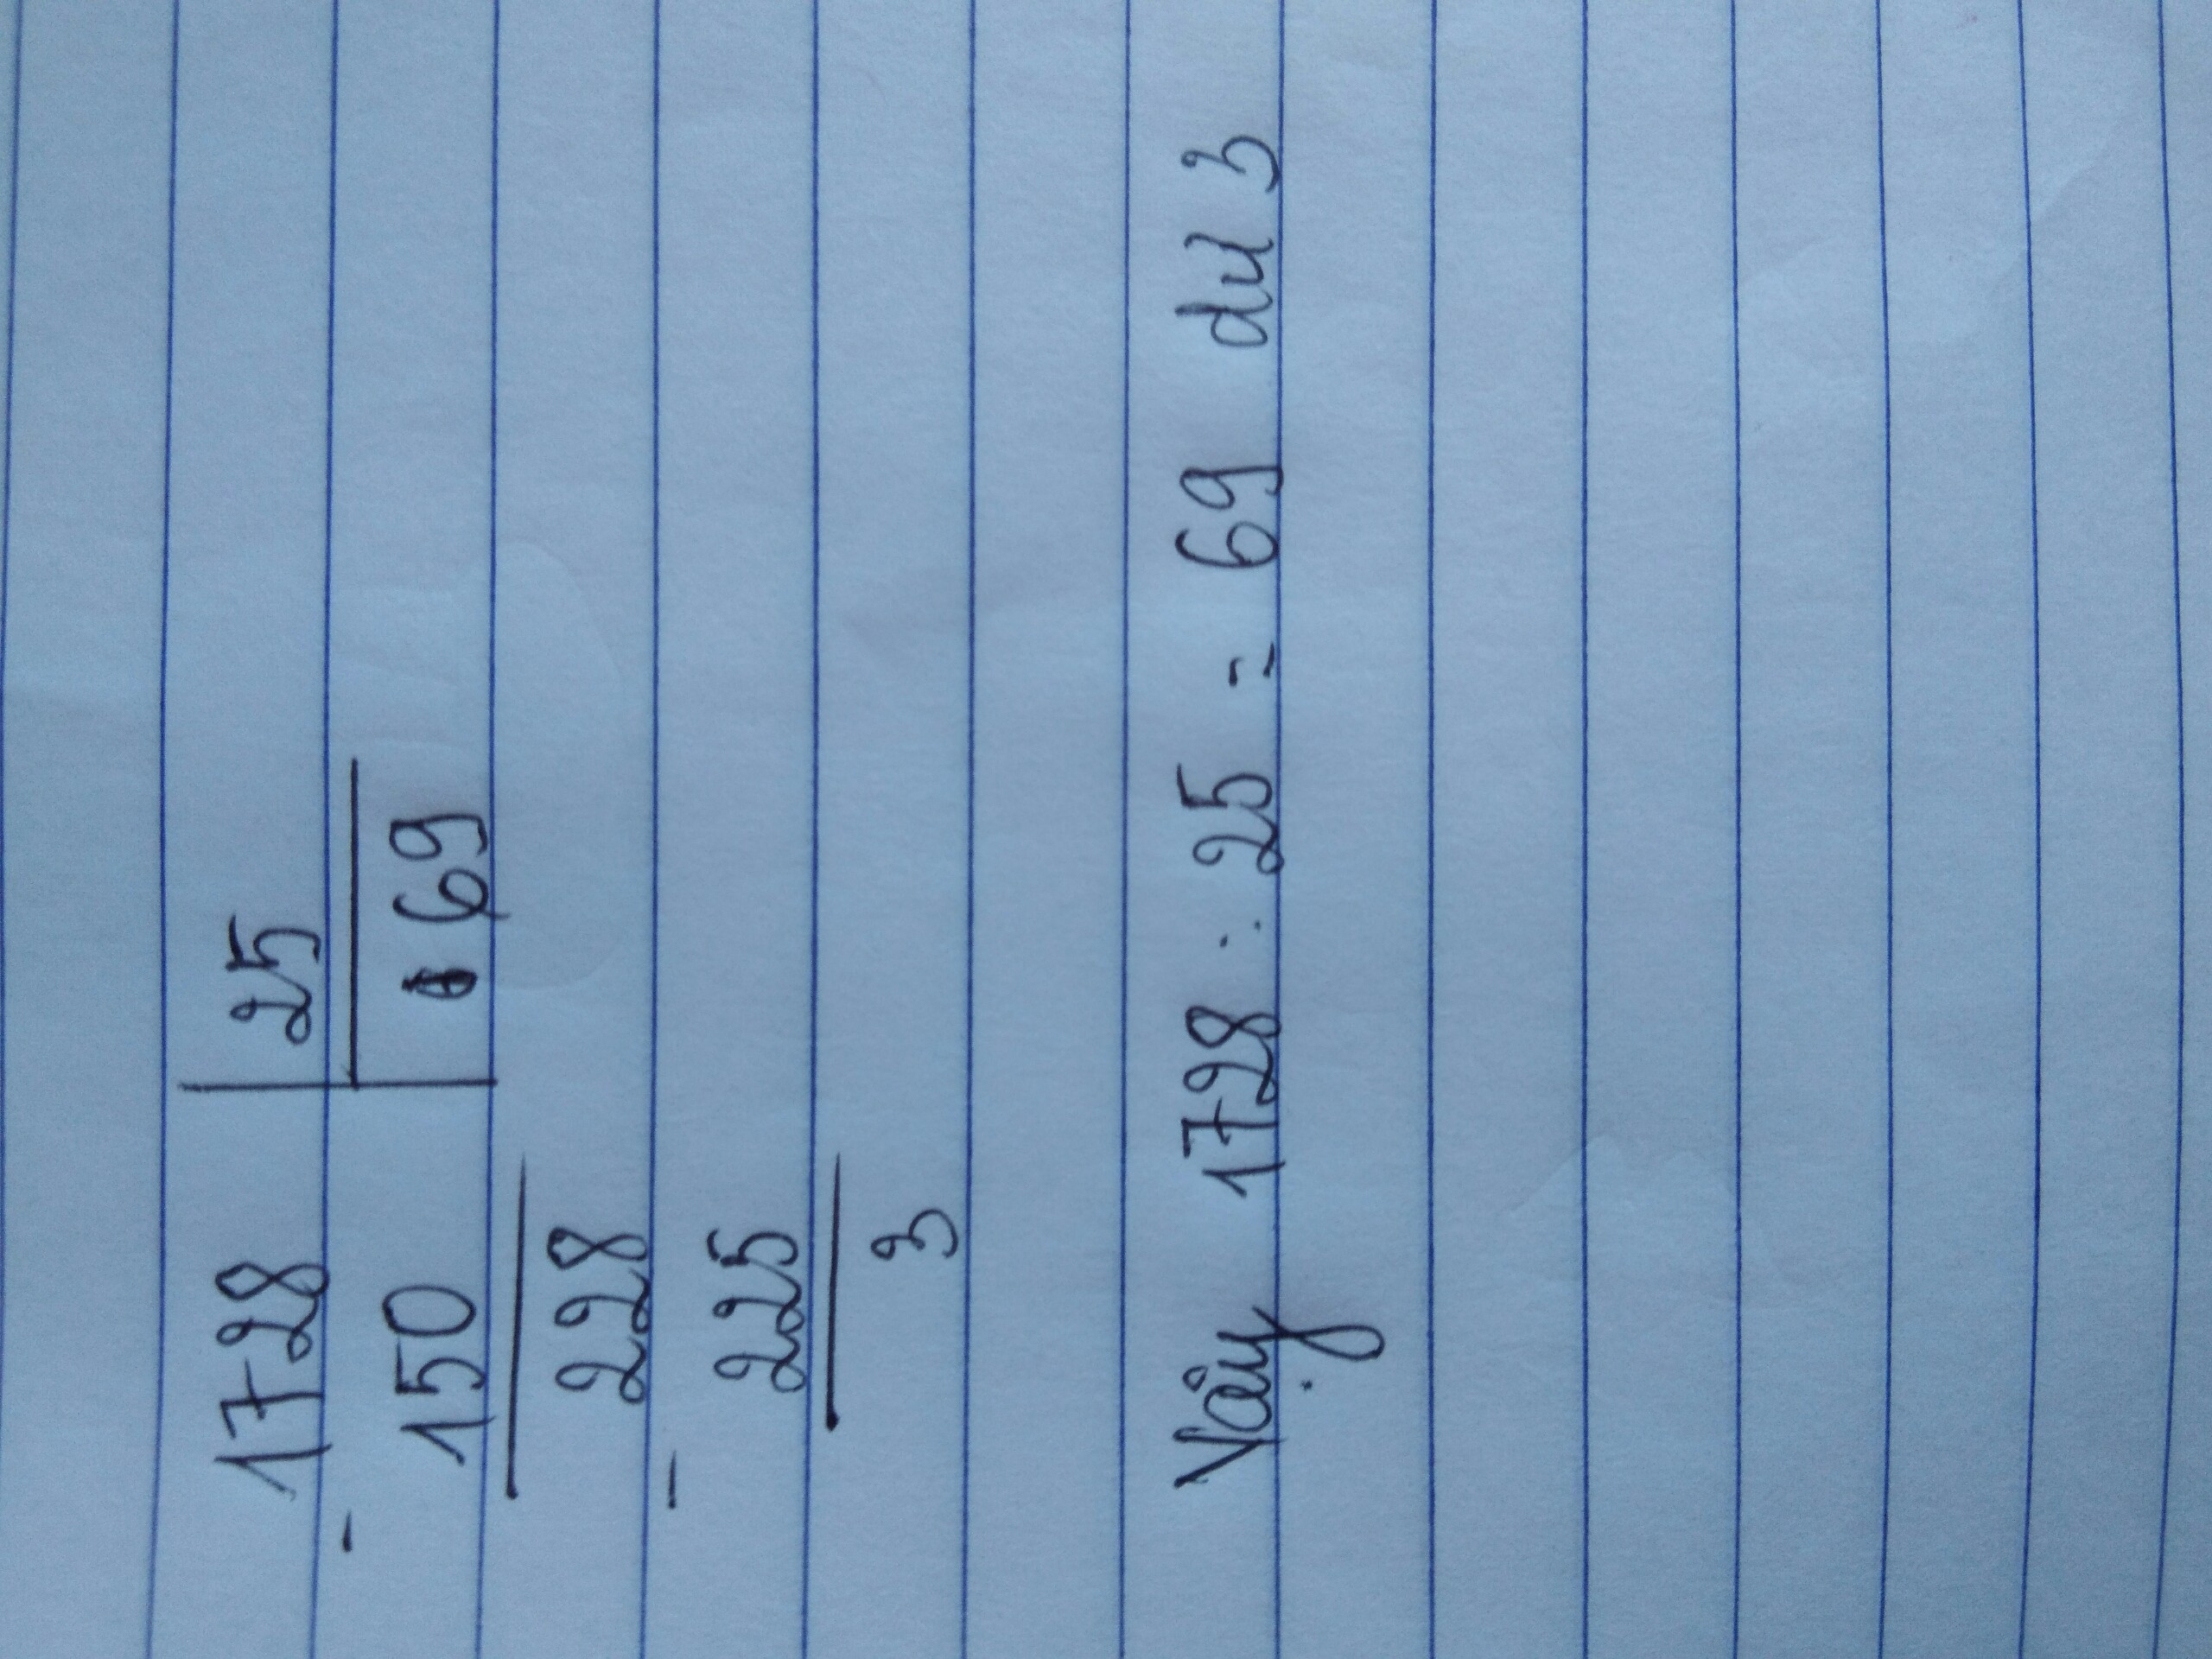 1728 | 25
- 150 | 69
228
- 225
3
Vậy 1728 : 25 = 69 dư 3